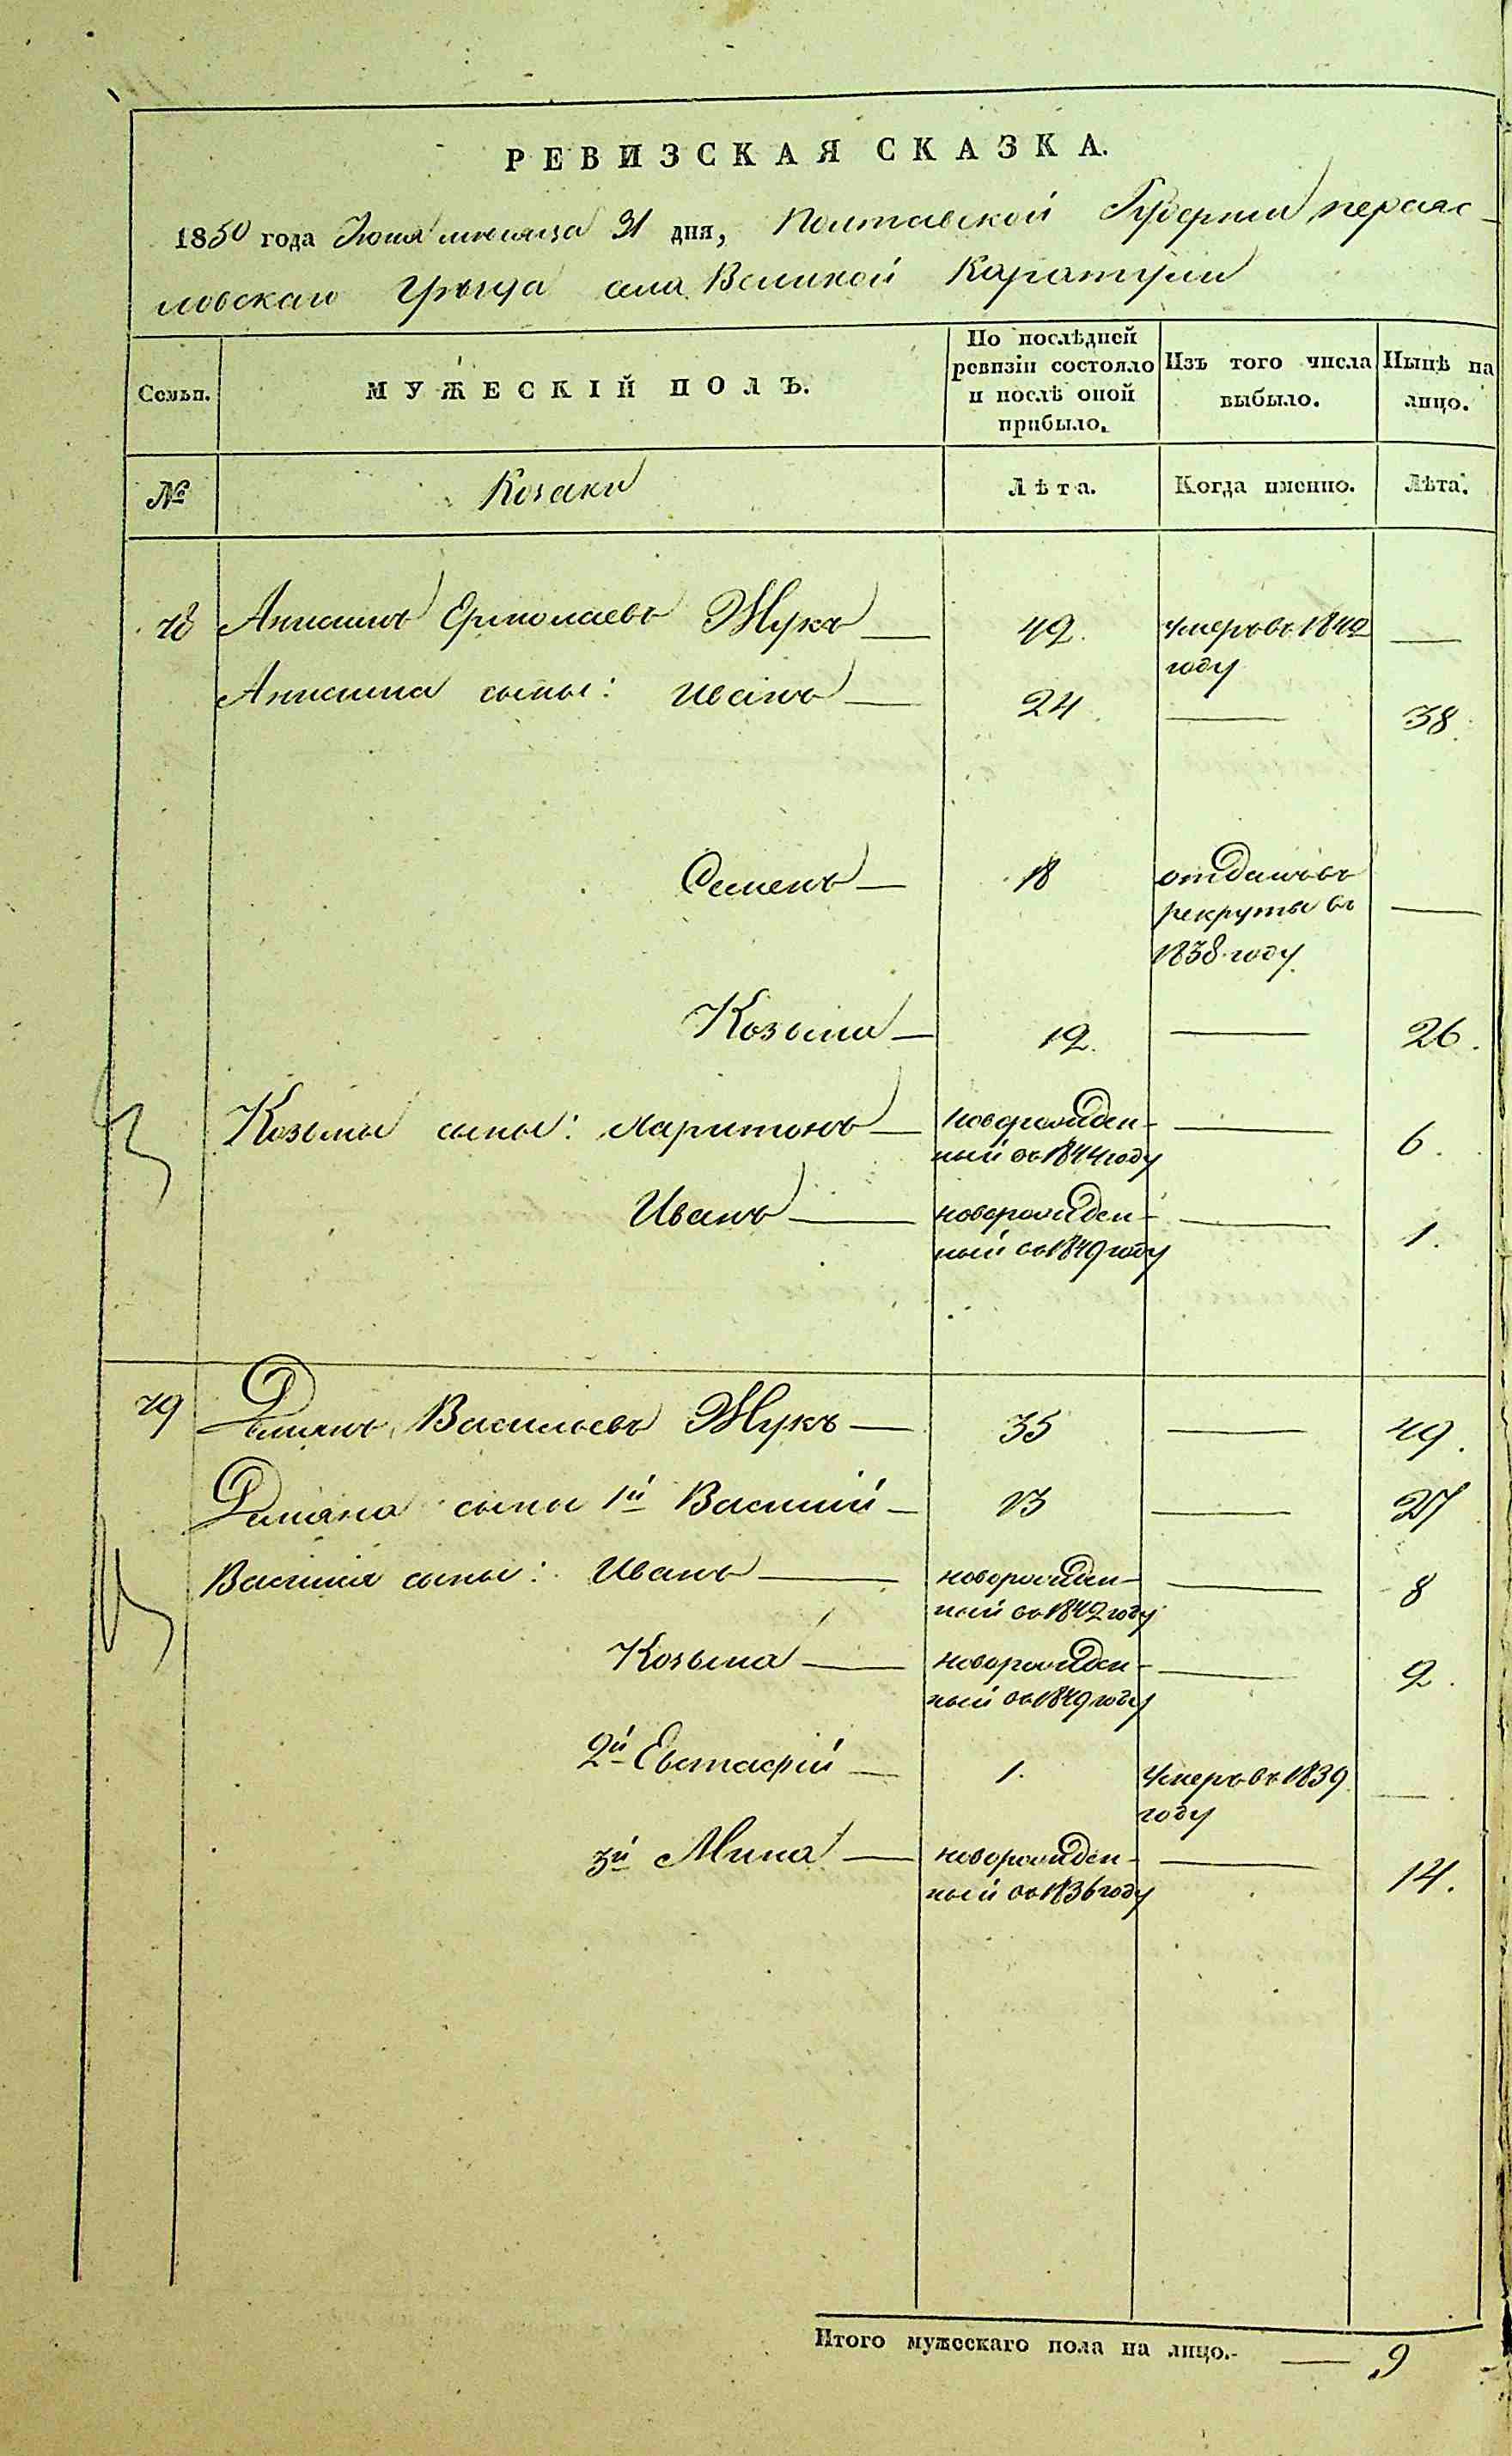 РЕВИЗСКАЯ СКАЗКА.
1850 года Июня месяца 31 дня, Полтавской Губернии переяс-
ловскаго Уѣзда села Великой Каратули
Семьи.
МУЖЕСКІЙ ПОЛЪ.
По послѣдней ревизіи состояло и послѣ оной прибыло.
Изъ того числа выбыло.
Нынѣ на лицо.
№
Козаки
Лѣта.
Когда именно.
Лѣта.
78 Анисимъ Ермолаевъ Жукъ — 42. умеръ въ 1842 —
году
Анисима сыны: Иванъ — 24 — 38.
Семенъ — 18 отданъ въ
рекруты въ —
1838 году
Козьма — 12. — 26.
Козьмы сыны: Харитонъ — новорожден- — 6.
ный въ 1844 году
Иванъ — новорожден- — 1.
ный въ 1849 году
79 Демьянъ Васильевъ Жукъ — 35 — 49.
Демьяна сыны 1й Василий — 13 — 27
Василия сыны: Иванъ — новорожден- — 8
ный въ 1842 году
Козьма — новорожден- — 2.
ный въ 1849 году
2й Евстафий — 1. Умеръ въ 1839 —
году
3й Мина — новорожден- — 14.
ный въ 1836 году
Итого мужескаго пола на лицо. — 9